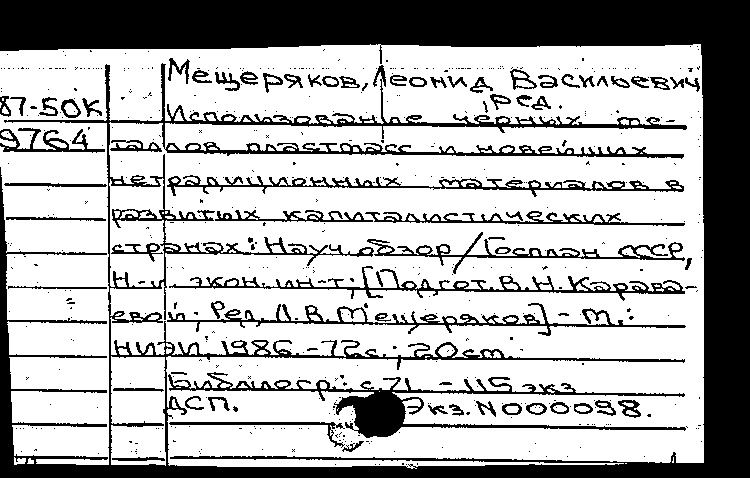 Мещеряков, Леонид Васильевич,
ред.
87-50К
9764
Использование черных ме-
таллов, пластмасс и новейших
нетрадиционных материалов в
развитых капиталистических
странах: Науч. обзор / Госплан СССР,
Н.-и. экон. ин-т; [Подгот. В. Н. Карава-
евой; Ред. Л. В. Мещеряков]. - М.:
НИЭИ, 1986. - 72 с.; 20 см.
Библиогр.: с. 71. - 115 экз.
ДСП. Экз. N 000098.